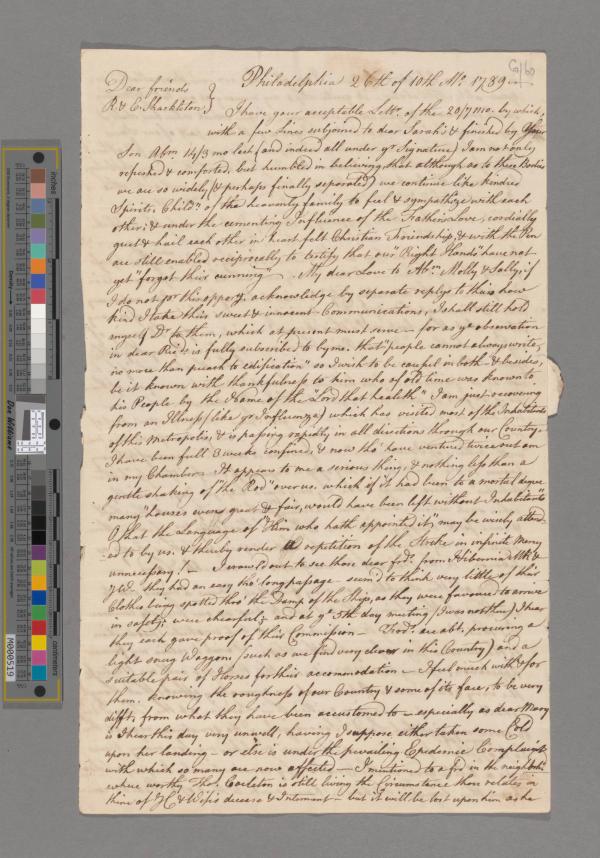 Philadelphia 26th of 10th Mo. 1789
Dear friends
R. & E. Shackleton.
I have your acceptable Lettr. of the 20/7 mo. by which,
with a few Lines subjoined to dear Sarah's & finished by
Son Abm. 14/3 mo last (and indeed all under yr. Signature) I am not only
refreshed & comforted, but humbled in believing, that although as to these Bodies
we are so widely (& perhaps finally separated) we continue like kindred
Spirits, Childn. of the heavenly family to feel & sympathize with each
other; & under the cementing Influence of the Fathers Love, cordially
greet & hail each other in heart felt Christian Friendship, & with the Pen
are still enabled reciprocally to testify that our "Right Hands" have not
yet "forgot their cunning" - My dear Love to Abm. Molly & Sally; if
I do not pr. this oppory. acknowledge by separate replys to them how
kind I take their sweet & innocent Communications, I shall still hold
myself Dr. to them, which at present must serve - for as yr. observation
in dear Richd. is fully subscribed to by me. that "people cannot always write,
no more than preach to edification" so I wish to be careful in both - & besides,
be it known with thankfulness to him who of old time was known to
his People by the Name of the Lord that healeth" I am just recovering
from an Illness (like yr. Influenza) which has visited most of the Inhabitants
of this Metropolis, & is passing rapidly in all directions through our Country.
I have been full 3 weeks confined, & now tho' have ventured twice out am
in my Chamber. It appears to me a serious thing, & nothing less than a
gentle shaking of "the Rod" over us. which if it had been to a mortal degree
many "houses even great & fair, would have been left without Inhabitants
O that the Language of "Him who hath appointed it," may be wisely attend
ed to by us. & thereby render a repetition of the Stroke in infinite Mercy
unnecessary! - I crawl'd out to see those dear frds. from Hibernia MR &
JW. they had an easy tho' long passage - seem'd to think very little of their
Cloths being spotted thro' the Damp of the Ship, as they were favoured to arrive
in safety; were chearful; and at yr. 5th day meeting (I was not there) I hear
they each gave proof of their Commission - Frds. are abt. procuring a
light snug Waggon (such as we find very clever in this Country) and a
suitable pair of Horses for their accommodation - I feel much with & for
them. knowing the roughness of our Country & some of its face, to be very
difft. from what they have been accustomed to - especially as dear Mary
is I hear this day very unwell, having I suppose either taken some Cold
upon her landing - or else is under the prevailing Epedemic Complaint
with which so many are now affected - I mentioned to a frd in the neighbohd
where worthy Thos. Carleton is still living the Circumstance thou relates in
thine of JC & Wife's decease & Interment - but it will be lost upon him as he